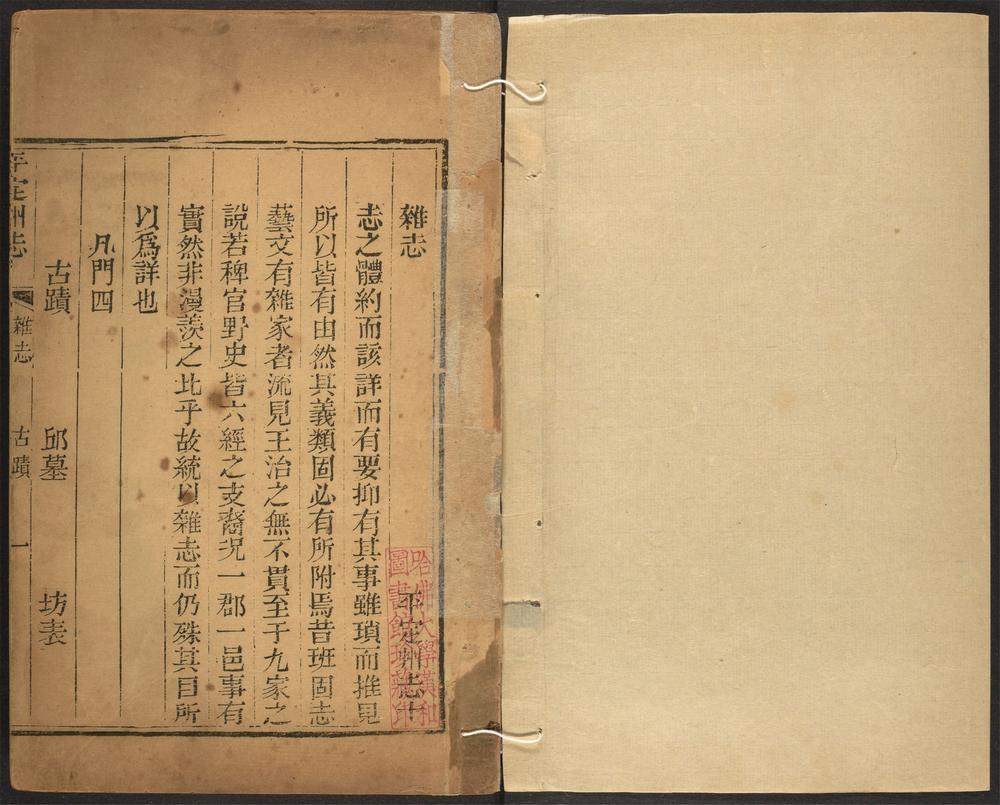 雜志 平定州志十
志之體約而該詳而有要抑有其事雖瑣而推見
所以皆有由然其義類固必有所附焉昔班固志
藝文有雜家者流見王治之無不貫至于九家之
說若稗官野史皆六經之支裔况一郡一邑事有
實然非漫羨之比乎故統以雜志而仍殊其目所
以爲詳也
凡門四
古蹟 邱墓 坊表
平定州志 雜志 古蹟 一
哈佛大學漢和
圖書館珍藏印